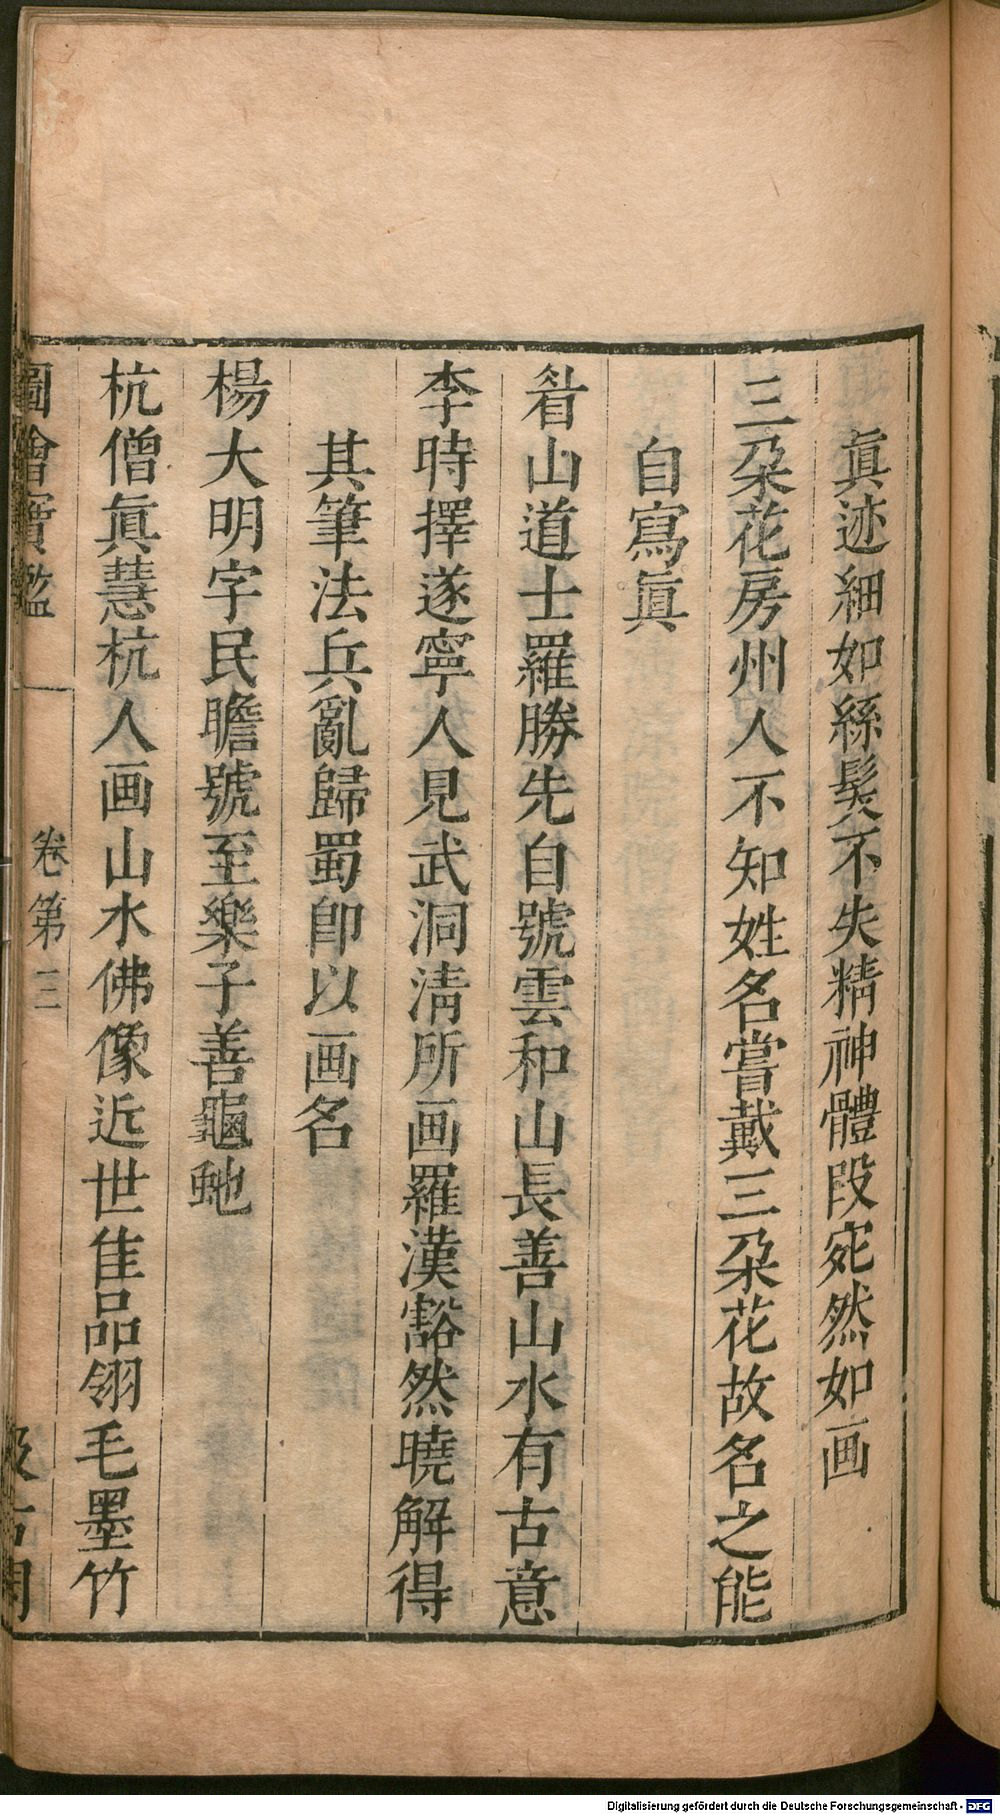 眞迹細如絲髮不失精神體段宛然如画
三朶花房州人不知姓名嘗戴三朶花故名之能
自寫眞
眉山道士羅勝先自號雲和山長善山水有古意
李時擇遂寧人見武洞淸所画羅漢豁然曉解得
其筆法兵亂歸蜀卽以画名
楊大明字民瞻號至樂子善龜虵
杭僧眞慧杭人画山水佛像近世佳品翎毛墨竹
圖繪寶鑑
卷第三
汲古閣
Digitalisierung gefördert durch die Deutsche Forschungsgemeinschaft - DFG